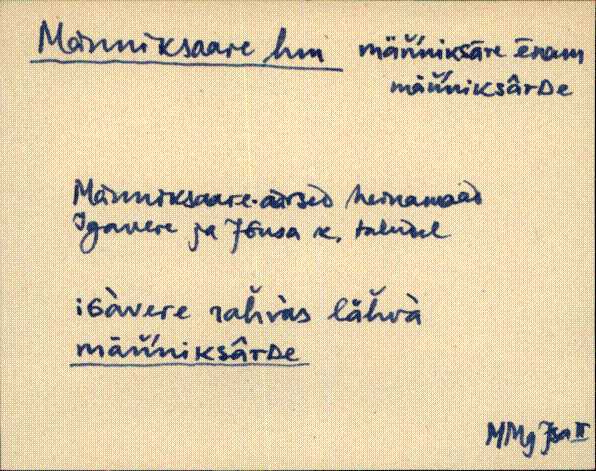 Männiksaare hm mäńńiksāre ēnam
mäńńiksârDe
Männiksaare-äärsed heinamaad
Igavere ja Jõusa k. taludel
iGàvere rahvàs lähvà
mäńńiksârDe
MMg Jsa II